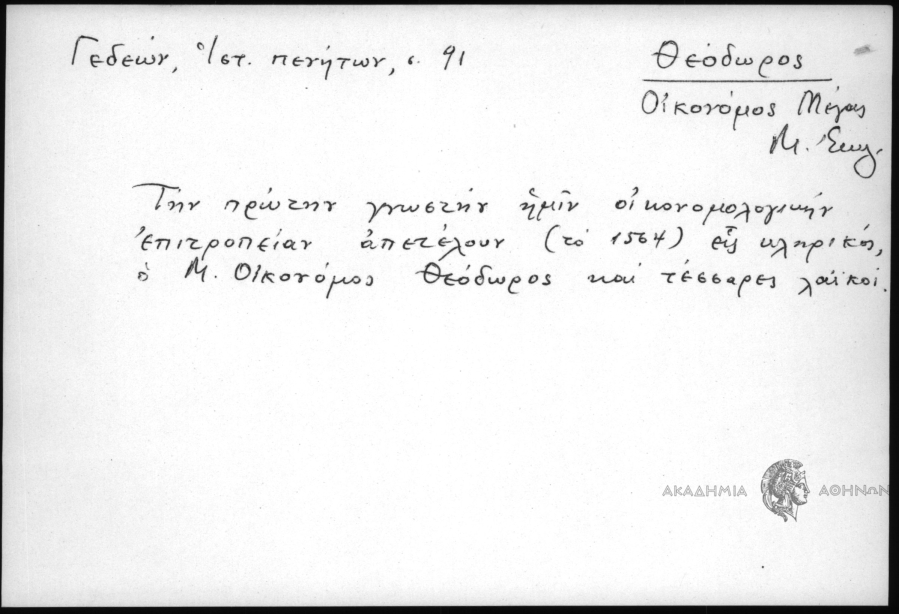 Γεδεών, Ἱστ. πενήτων, σ. 91
Θεόδωρος
Οἰκονόμος Μέγας
Μ. Ἐκκλ.
Τὴν πρώτην γνωστὴν ἡμῖν οἰκονομολογικὴν
ἐπιτροπείαν ἀπετέλουν (τὸ 1564) εἷς κληρικός,
ὁ Μ. Οἰκονόμος Θεόδωρος καὶ τέσσαρες λαϊκοί.
ΑΚΑΔΗΜΙΑ ΑΘΗΝΩΝ